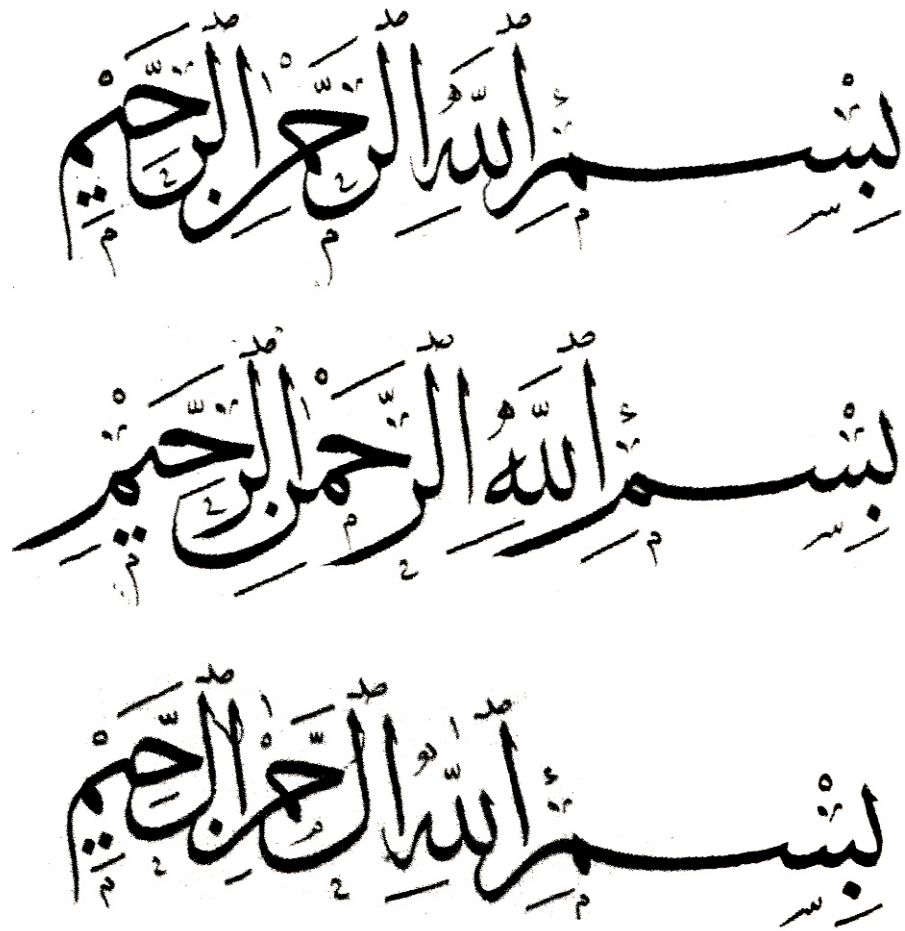 بِسْمِ ٱللَّهِ ٱلرَّحْمَٰنِ ٱلرَّحِيْمِ
بِسْمِ ٱللَّهِ ٱلرَّحْمَٰنِ ٱلرَّحِيْمِ
بِسْمِ ٱللَّهِ ٱلرَّحْمَٰنِ ٱلرَّحِيْمِ